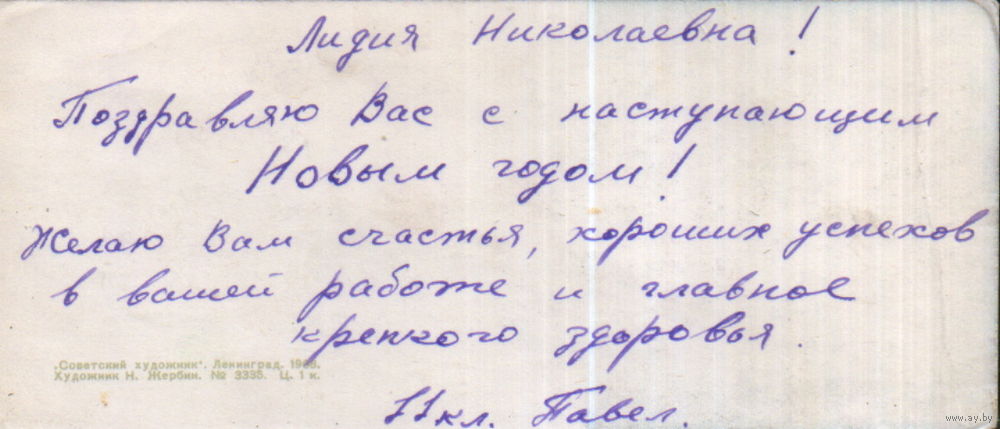 Лидия Николаевна!
Поздравляю Вас с наступающим
Новым годом!
Желаю Вам счастья, хороших успехов
в вашей работе и главное
крепкого здоровья.
„Советский художник“. Ленинград. 1968.
Художник Н. Жербин. № 3335. Ц. 1 к.
11 кл. Павел.
www.ay.by